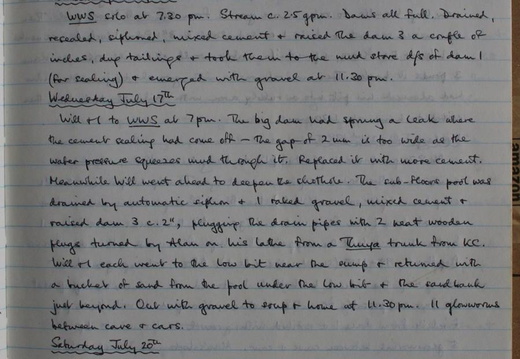 WWS solo at 7.30 pm. Stream c. 25 gpm. Dams all full. Drained,
resealed, siphoned, mixed cement & raised the dam 3 a couple of
inches, dug tailings & took them to the mud store d/s of dam 1
(for sealing) & emerged with gravel at 11.30 pm.
Wednesday July 17th
Will & I to WWS at 7pm. The big dam had sprung a leak where
the cement sealing had come off – the gap of 2 mm is too wide as the
water pressure squeezes mud through it. Replaced it with more cement.
Meanwhile Will went ahead to deepen the . The sub-floors pool was
drained by automatic siphon & I raked gravel, mixed cement &
raised dam 3 c. 2", plugging the drain pipes with 2 neat wooden
plugs turned by Alan on his lathe from a Thuya trunk from KC.
Will & I each went to the low bit near the sump & returned with
a bucket of sand from the pool under the low bit & the sandbank
just beyond. Out with gravel to soup & home at 11.30pm. 11 glowworms
between cave & cars.
Saturday July 20th
amazon